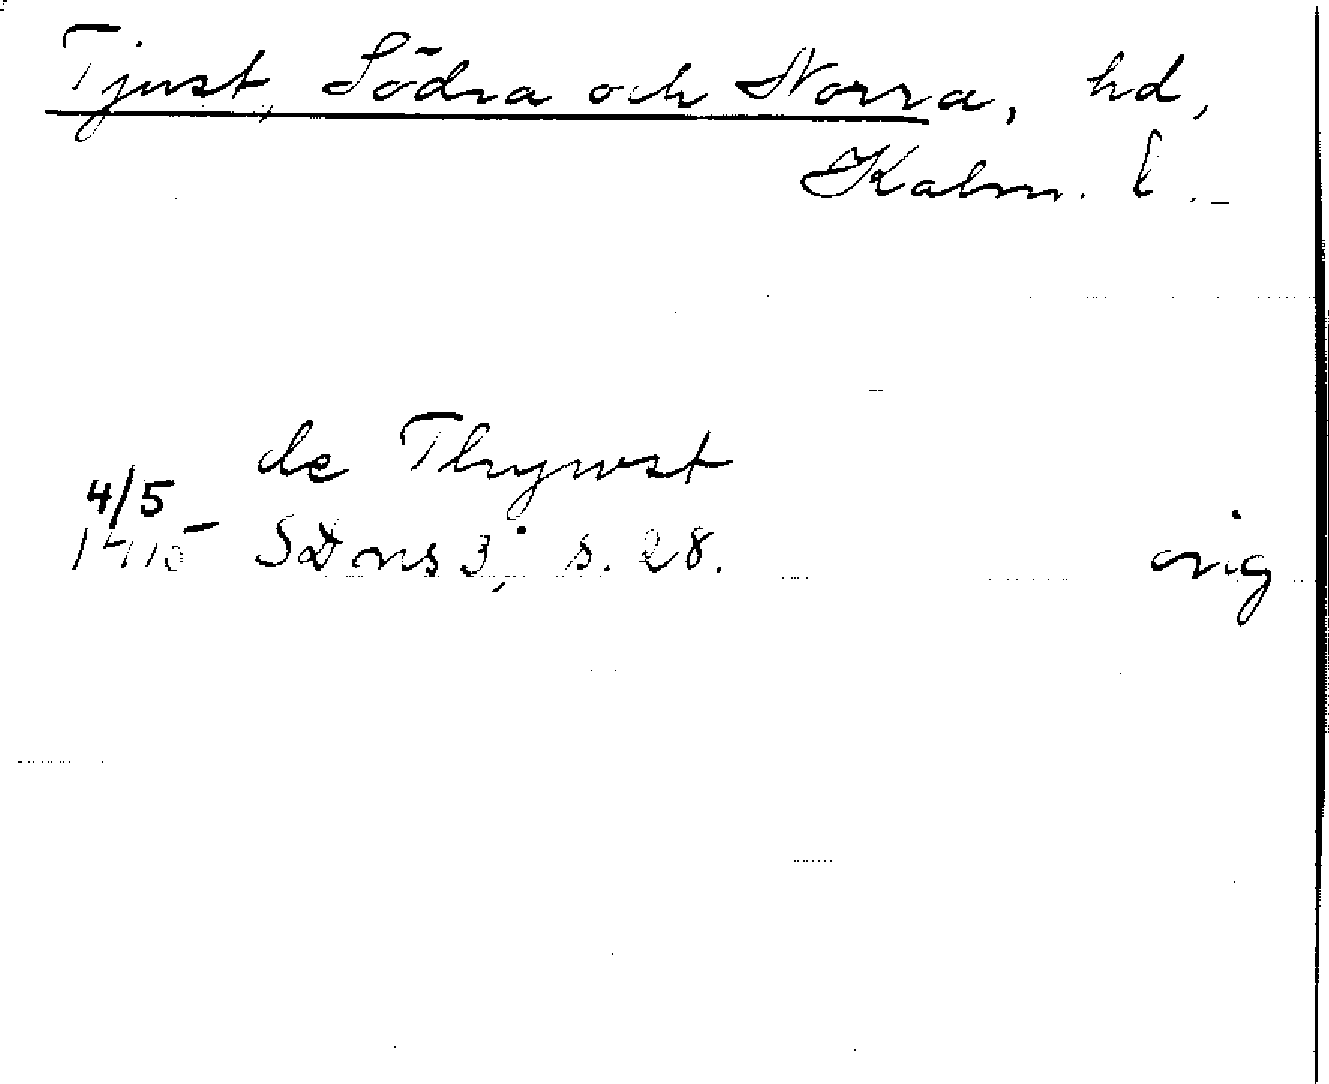 Tjust, Södra och Norra, hd,
Kalm. l.
de Thywst
4/5
1415 SD ns 3, s. 28. orig